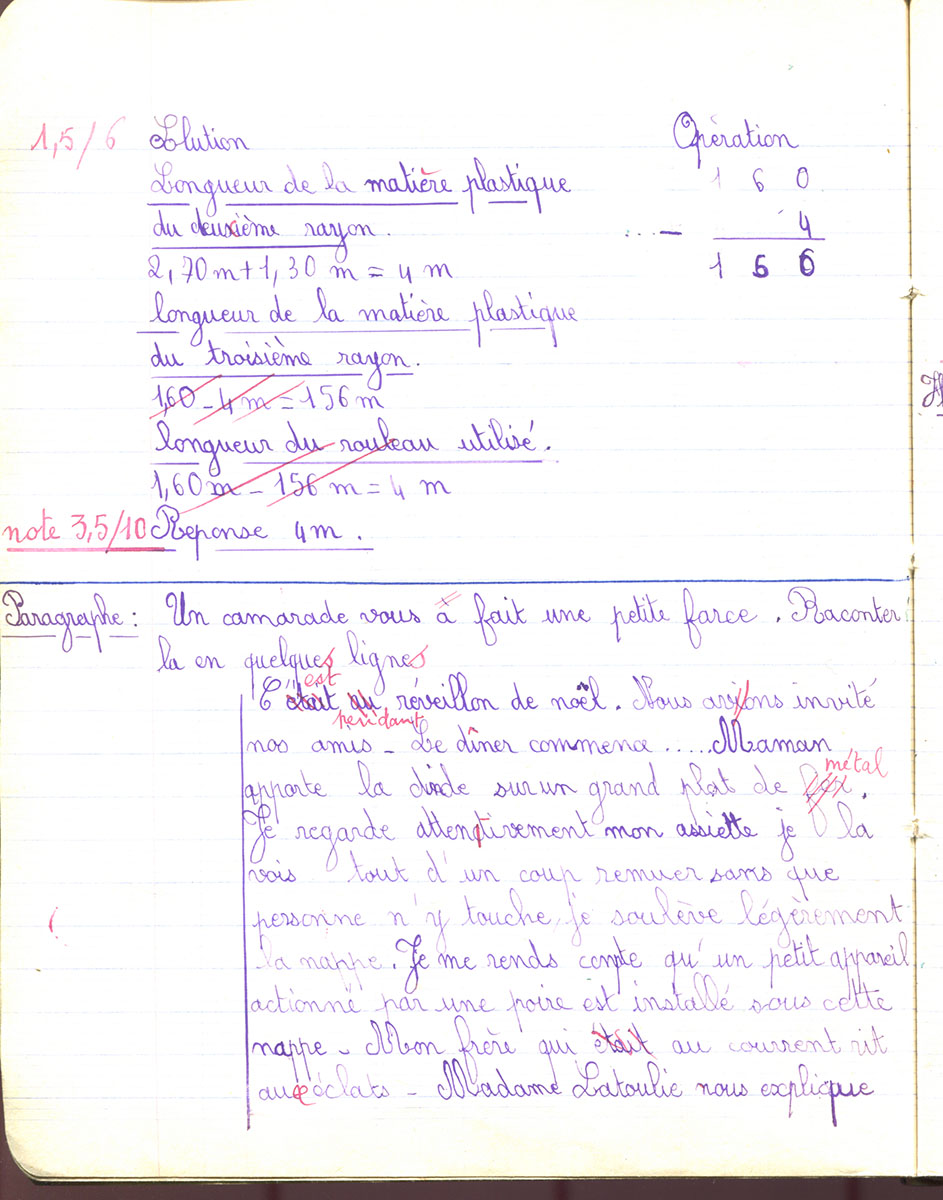 1,5/6 Solution Opération
Longueur de la matière plastique 1 6 0
du deuxième rayon. ... – 4
2,70 m + 1,30 m = 4 m 1 5 6
longueur de la matière plastique
du troisième rayon.
1,60 - 4 m = 156 m
longueur du rouleau utilisé.
1,60 m - 156 m = 4 m
note 3,5/10 Reponse 4 m.
Paragraphe : Un camarade vous à fait une petite farce. Raconter
la en quelques lignes
est
C'était au réveillon de noël. Nous avions invité
pendant
nos amis - Le dîner commence ..... Maman
métal
apporte la dinde sur un grand plat de
Je regarde attentivement mon assiette je la
vois tout d'un coup remuer sans que
personne n'y touche, je soulève légèrement
la nappe. Je me rends compte qu'un petit appareil
actionné par une poire est installé sous cette
nappe - Mon frère qui était au courrent rit
aux éclats - Madame Latoulie nous explique